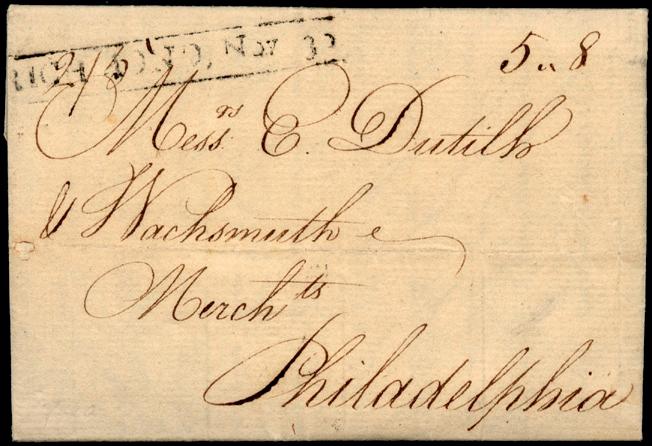 RICHMOND, Nov. 30
5 „ 8
Mess.rs E. Dutilh
& Wachsmuth
Merch.ts
Philadelphia